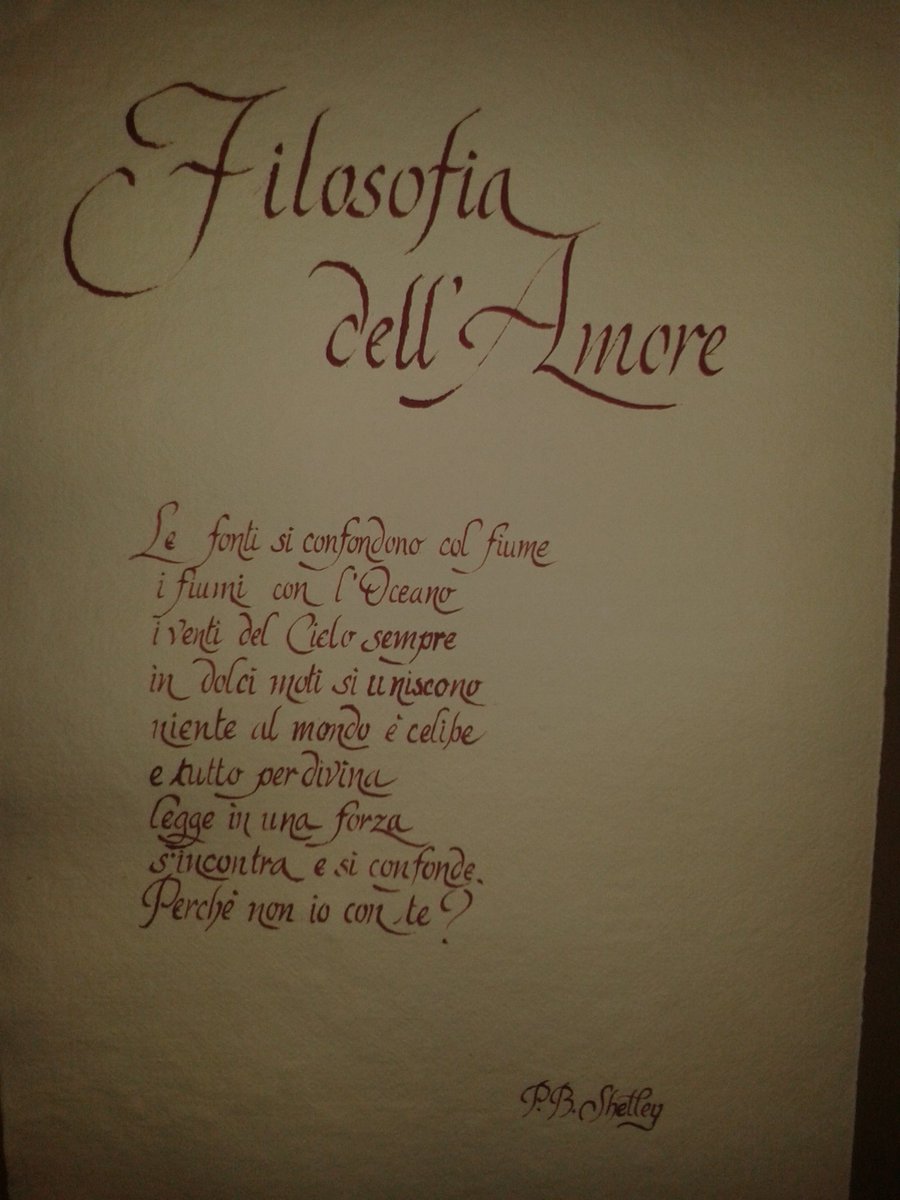 Filosofia
dell'Amore
Le fonti si confondono col fiume
i fiumi con l'Oceano
i venti del Cielo sempre
in dolci moti si uniscono
niente al mondo è celibe
e tutto per divina
legge in una forza
s'incontra e si confonde.
Perchè non io con te?
P.B. Shelley